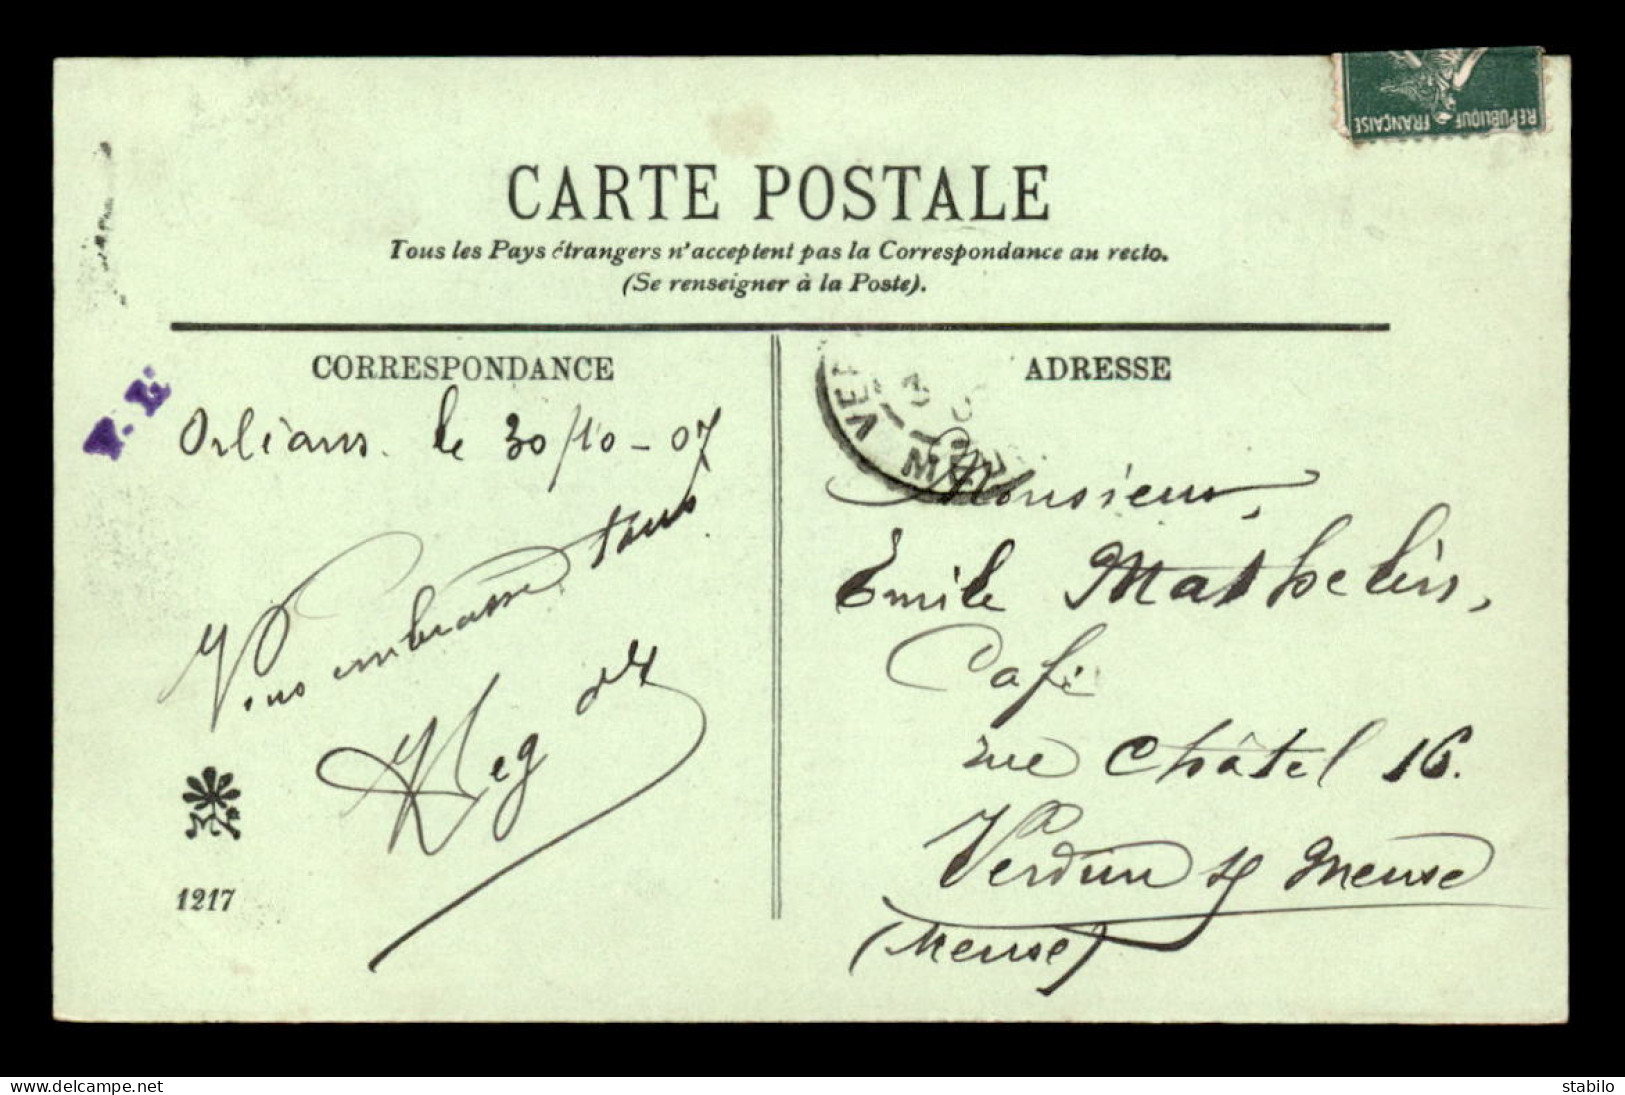 RÉPUBLIQUE FRANÇAISE
CARTE POSTALE
Tous les Pays étrangers n'acceptent pas la Correspondance au recto.
(Se renseigner à la Poste).
CORRESPONDANCE
Orléans. le 30/10-07
Vous embrasse tous
1217
ADRESSE
Monsieur,
Emile
Café
rue Châtel 16.
Verdun s/ Meuse
(Meuse)
website www.delcampe.net
stabilo